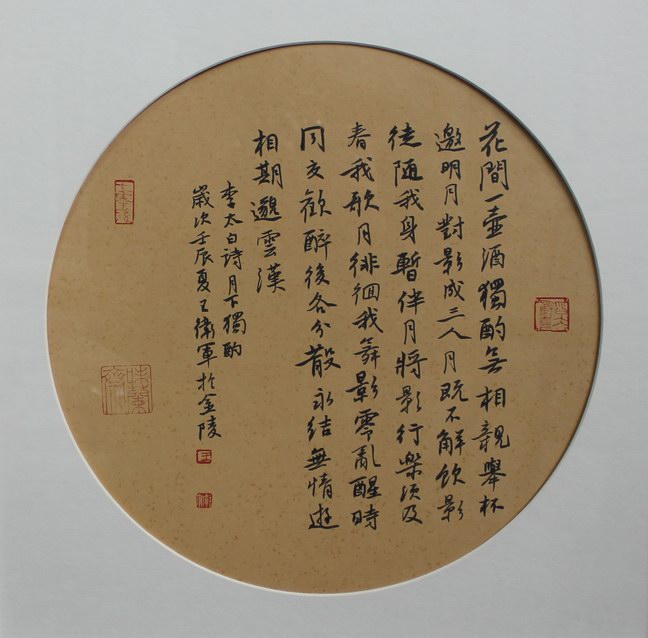 花間一壺酒獨酌無相親舉杯
邀明月對影成三人月既不解飲影
徒随我身暫伴月將影行樂須及
春我歌月徘徊我舞影零亂醒時
同交歡醉後各分散永結無情遊
相期邈雲漢
李太白诗月下獨酌
歲次壬辰夏王衛軍於金陵
王